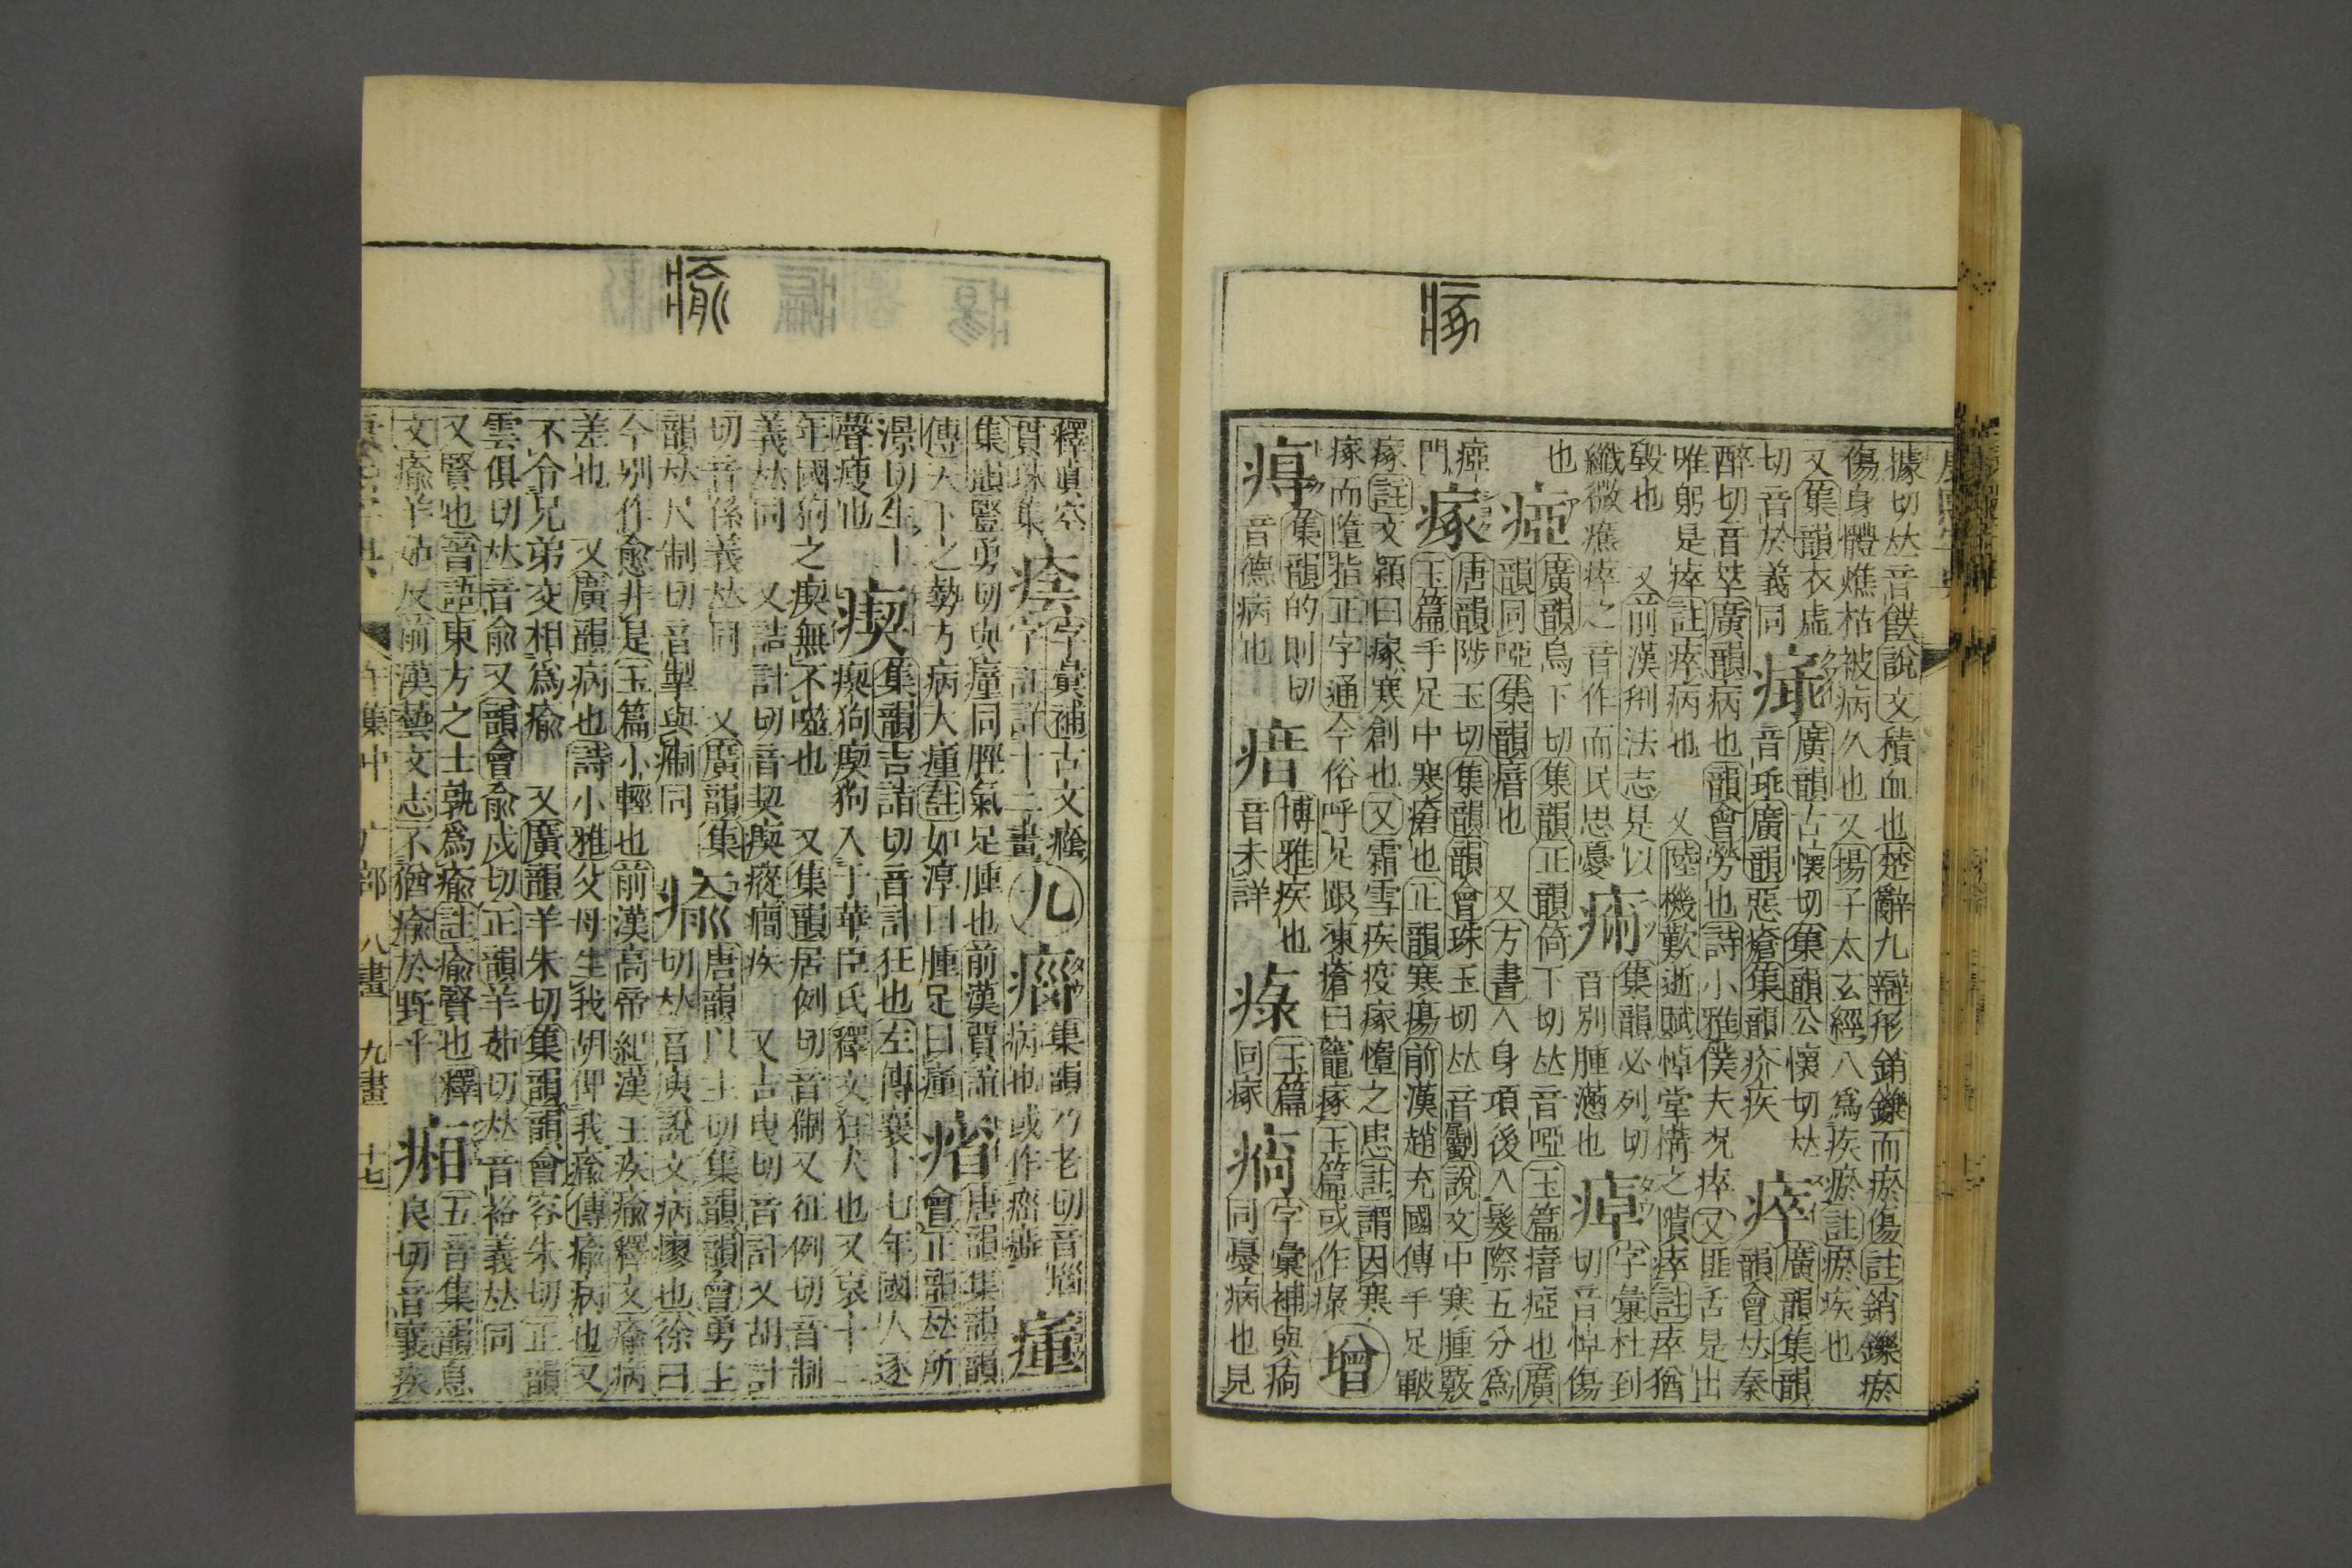 據切𠀤音飫說文積血也楚辭九辯形銷鑠而瘀傷註銷鑠瘀
傷身體燋枯被病久也又揚子太玄經八爲疾瘀註瘀疾也
又集韻衣虛
切音於義同
廣韻古懷切集韻公懷切𠀤
音乖廣韻惡瘡集韻疥疾
瘁
廣韻集韻
韻會𠀤秦
醉切音萃廣韻病也韻會勞也詩小雅僕夫況瘁又匪舌是出
唯躬是瘁註瘁病也 又陸機歎逝賦悼堂構之隤瘁註瘁猶
毀也 又前漢刑法志是以
纖微癄瘁之音作而民思憂
集韻必列切
音別腫滿也
字彙杜到
切音悼傷
也
瘂
廣韻烏下切集韻正韻倚下切𠀤音啞玉篇瘖瘂也廣
韻同啞集韻瘖也 又方書人身項後入髮際五分爲
瘂
門
瘃
唐韻陟玉切集韻韻會珠玉切𠀤音斸說文中寒腫覈
玉篇手足中寒瘡也正韻寒瘍前漢趙充國傳手足皸
瘃註文穎曰瘃寒創也又霜雪疾疫瘃墮之患註謂因寒
瘃而墮指正字通今俗呼足跟凍瘡曰竉瘃玉篇或作瘯
增
集韻的則切
音德病也
瘔
博雅疾也
音未詳
玉篇
同瘃
字彙補與痾
同憂病也見
釋眞空
貫珠集
字彙補古文癊
字註詳十二畫
九
集韻乃老切音惱
病也或作
瘇
唐韻集韻
集韻豎勇切與㿈同脛氣足腫也前漢賈誼
傳天下之勢方病大瘇註如淳曰腫足曰瘇
㾪
會正韻𠀤所
瘈
集韻吉詣切音計狂也左傳襄十七年國人逐
瘈狗瘈狗入于華臣氏釋文狂犬也又哀十二
年國狗之瘈無不噬也 又集韻居例切音猘又征例切音制
義𠀤同 又詰計切音契瘈瘲癎疾 又吉曳切音計又胡計
切音係義𠀤同 又廣韻集
唐韻以主切集韻韻會勇主
切𠀤音庾說文病瘳也徐曰
今別作愈非是玉篇小輕也前漢高帝紀漢王疾瘉釋文瘉病
差也 又廣韻病也詩小雅父母生我胡俾我瘉傳瘉病也又
不令兄弟交相爲瘉 又廣韻羊朱切集韻韻會容朱切正韻
雲俱切𠀤音兪又韻會兪戍切正韻羊茹切𠀤音裕義𠀤同
又賢也晉語東方之士孰爲瘉註瘉賢也釋
文瘉羊茹反前漢藝文志不猶瘉於野乎
五音集韻息
良切音襄疾
午集中 疒部 八畫 九畫 十七